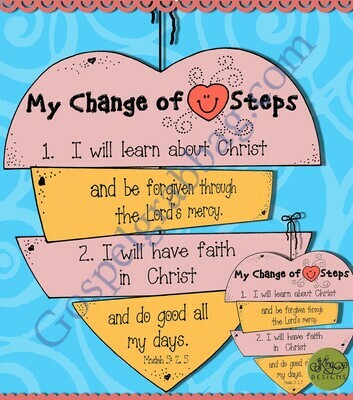 My Change of Steps
1. I will learn about Christ
and be forgiven through
the Lord's mercy.
2. I will have faith
in Christ
and do good all
my days.
Mosiah 5: 2, 5
Gospelgrabbag.com
My Change of Steps
1. I will learn about Christ
and be forgiven through
the Lord's mercy.
2. I will have faith
in Christ
and do good all
my days.
DESIGNS